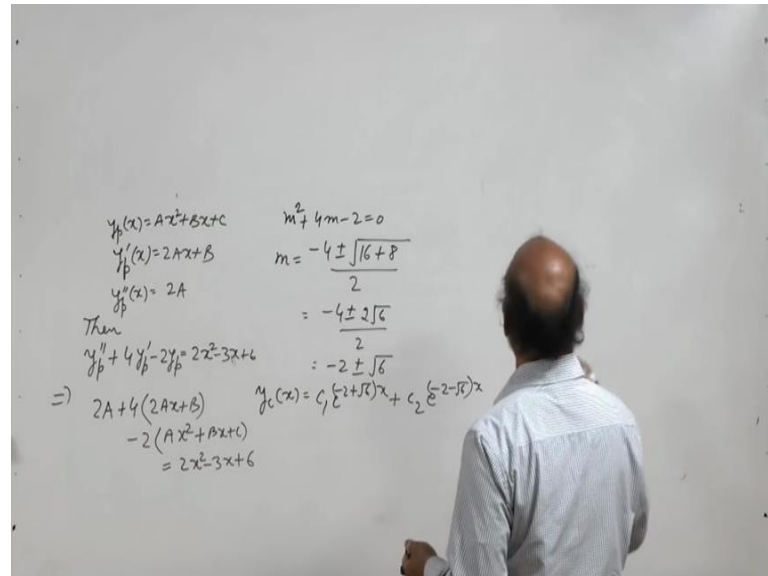 y_p(x)=Ax²+Bx+C
y_p'(x)=2Ax+B
y_p''(x)=2A
Then
y_p''+4y_p'-2y_p=2x²-3x+6
=> 2A+4(2Ax+B)
-2(Ax²+Bx+C)
=2x²-3x+6
m²+4m-2=0
m= (-4±√(16+8))/2
= (-4±2√6)/2
= -2±√6
y_c(x)=c₁e^(-2+√6)x+c₂e^(-2-√6)x